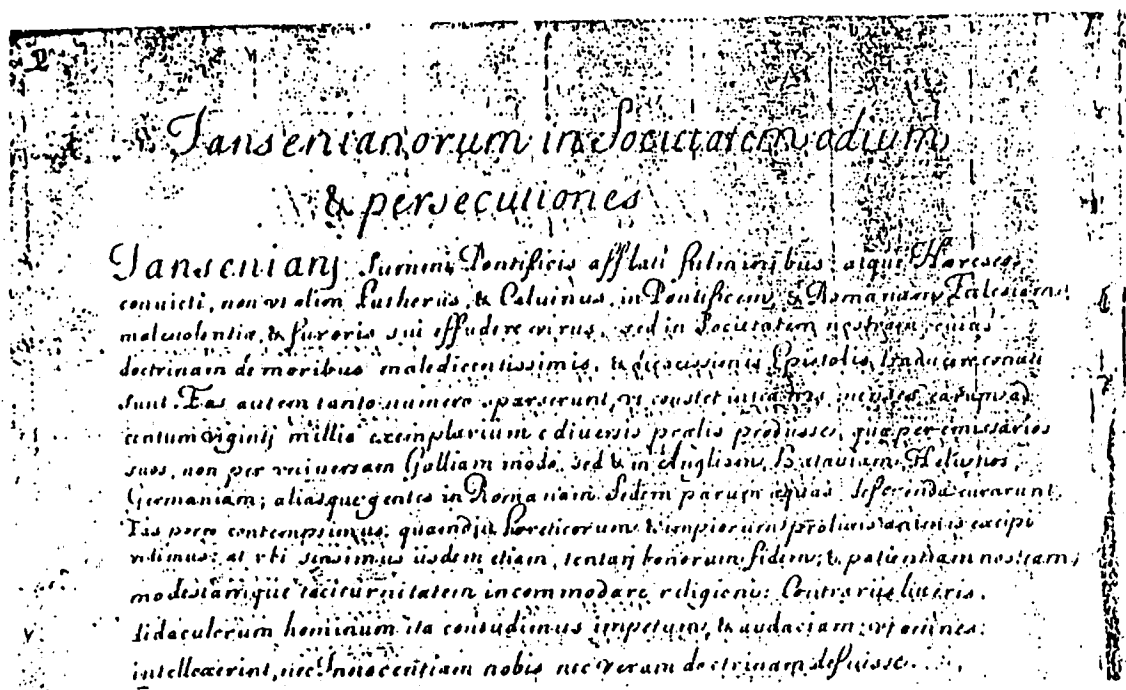 Jansenianorum in Societatem odium
& persecutiones
Jansenianj Summi Pontificis afflati fulminibus, atque Hæreseos
convicti, non vt olim Lutherus, & Calvinus, in Pontificem, & Romanam Ecclesiam
malevolentiæ, & furoris sui effudere virus, sed in Societatem nostram, cuius
doctrinam de moribus maledicentissimis, & Epistolis traducere conati
sunt. Eas autem tanto numero sparserunt, vt constet menses earum ad
centum vigintj millia exemplarium e diversis prælis prodijsse, quæ per emissarios
suos, non per vniversam Galliam modo, sed & in Angliam, Bataviam, Helvetios,
Germaniam; aliasque gentes in Romanam Sedem parum æquas deferenda curarunt.
Eas porro contempsimus; quamdiu hæreticorum & impiorum animis excipi
vidimus; at vbi sensimus ijsdem etiam tentarj bonorum fidem; & patientiam nostram,
modestiamque taciturnitatem incommodare religioni: Contrarijs literis
hominum ita contudimus impetum, & audaciam; vt omnes
intellexerint, nec Innocentiam nobis nec veram doctrinam defuisse.